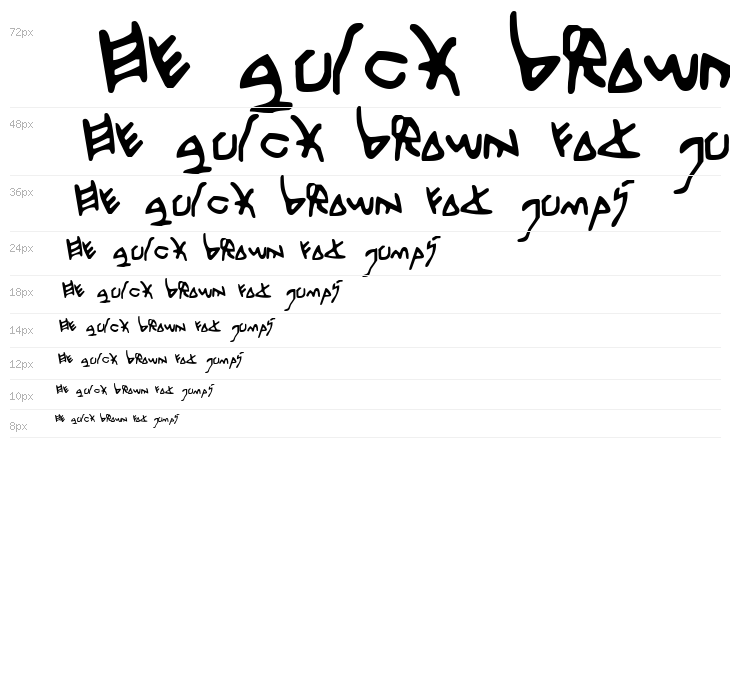 72px HE quick brown
48px HE quick brown fox ju
36px HE quick brown fox jumps
24px HE quick brown fox jumps
18px HE quick brown fox jumps
14px HE quick brown fox jumps
12px HE quick brown fox jumps
10px HE quick brown fox jumps
8px HE quick brown fox jumps